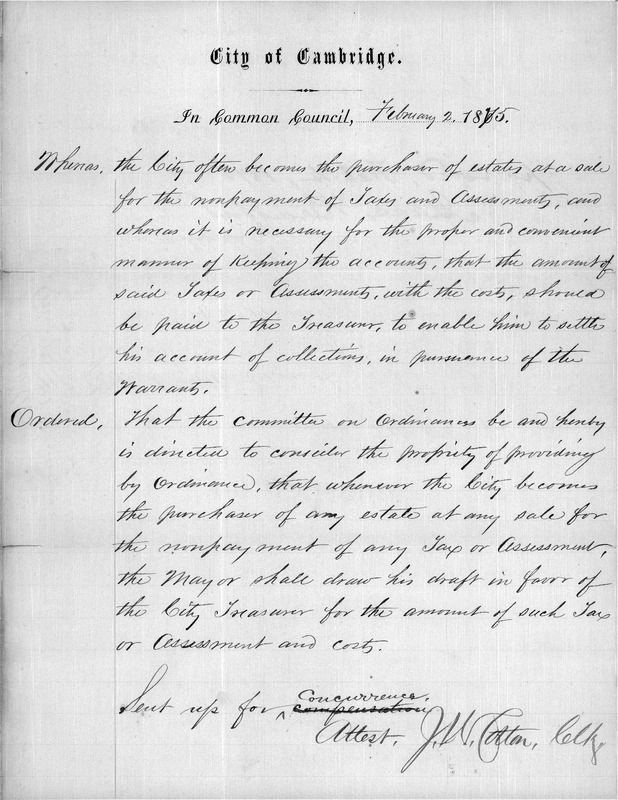 City of Cambridge.
In Common Council, February 2. 1875.
Whereas, the City often becomes the purchaser of estates at a sale
for the nonpayment of Taxes and Assessments, and
whereas it is necessary for the proper and convenient
manner of Keeping the accounts, that the amount of
said Taxes or Assessments, with the costs, should
be paid to the Treasurer, to enable him to settle
his account of collections, in pursuance of the
Warrants.
Ordered, That the Committee on Ordinances be and hereby
is directed to consider the propriety of providing
by Ordinance, that whenever the City becomes
the purchaser of any estate at any sale for
the nonpayment of any Tax or Assessment,
the Mayor shall draw his draft in favor of
the City Treasurer for the amount of such Tax
or Assessment and costs.
Concurrence.
Sent up for compensation
Attest, J. W. Cotton, Clk